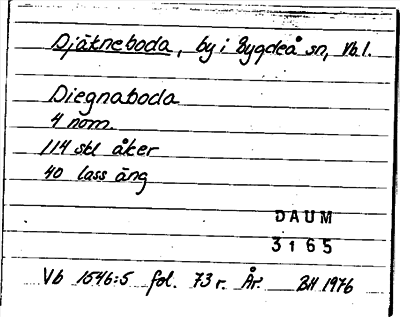 Djäkneboda, by i Bygdeå sn, Vb.l.
Diegnaboda
4 nom
114 skl åker
40 lass äng
DAUM
3165
Vb 1646:5 fol. 73 r. År. BH 1976